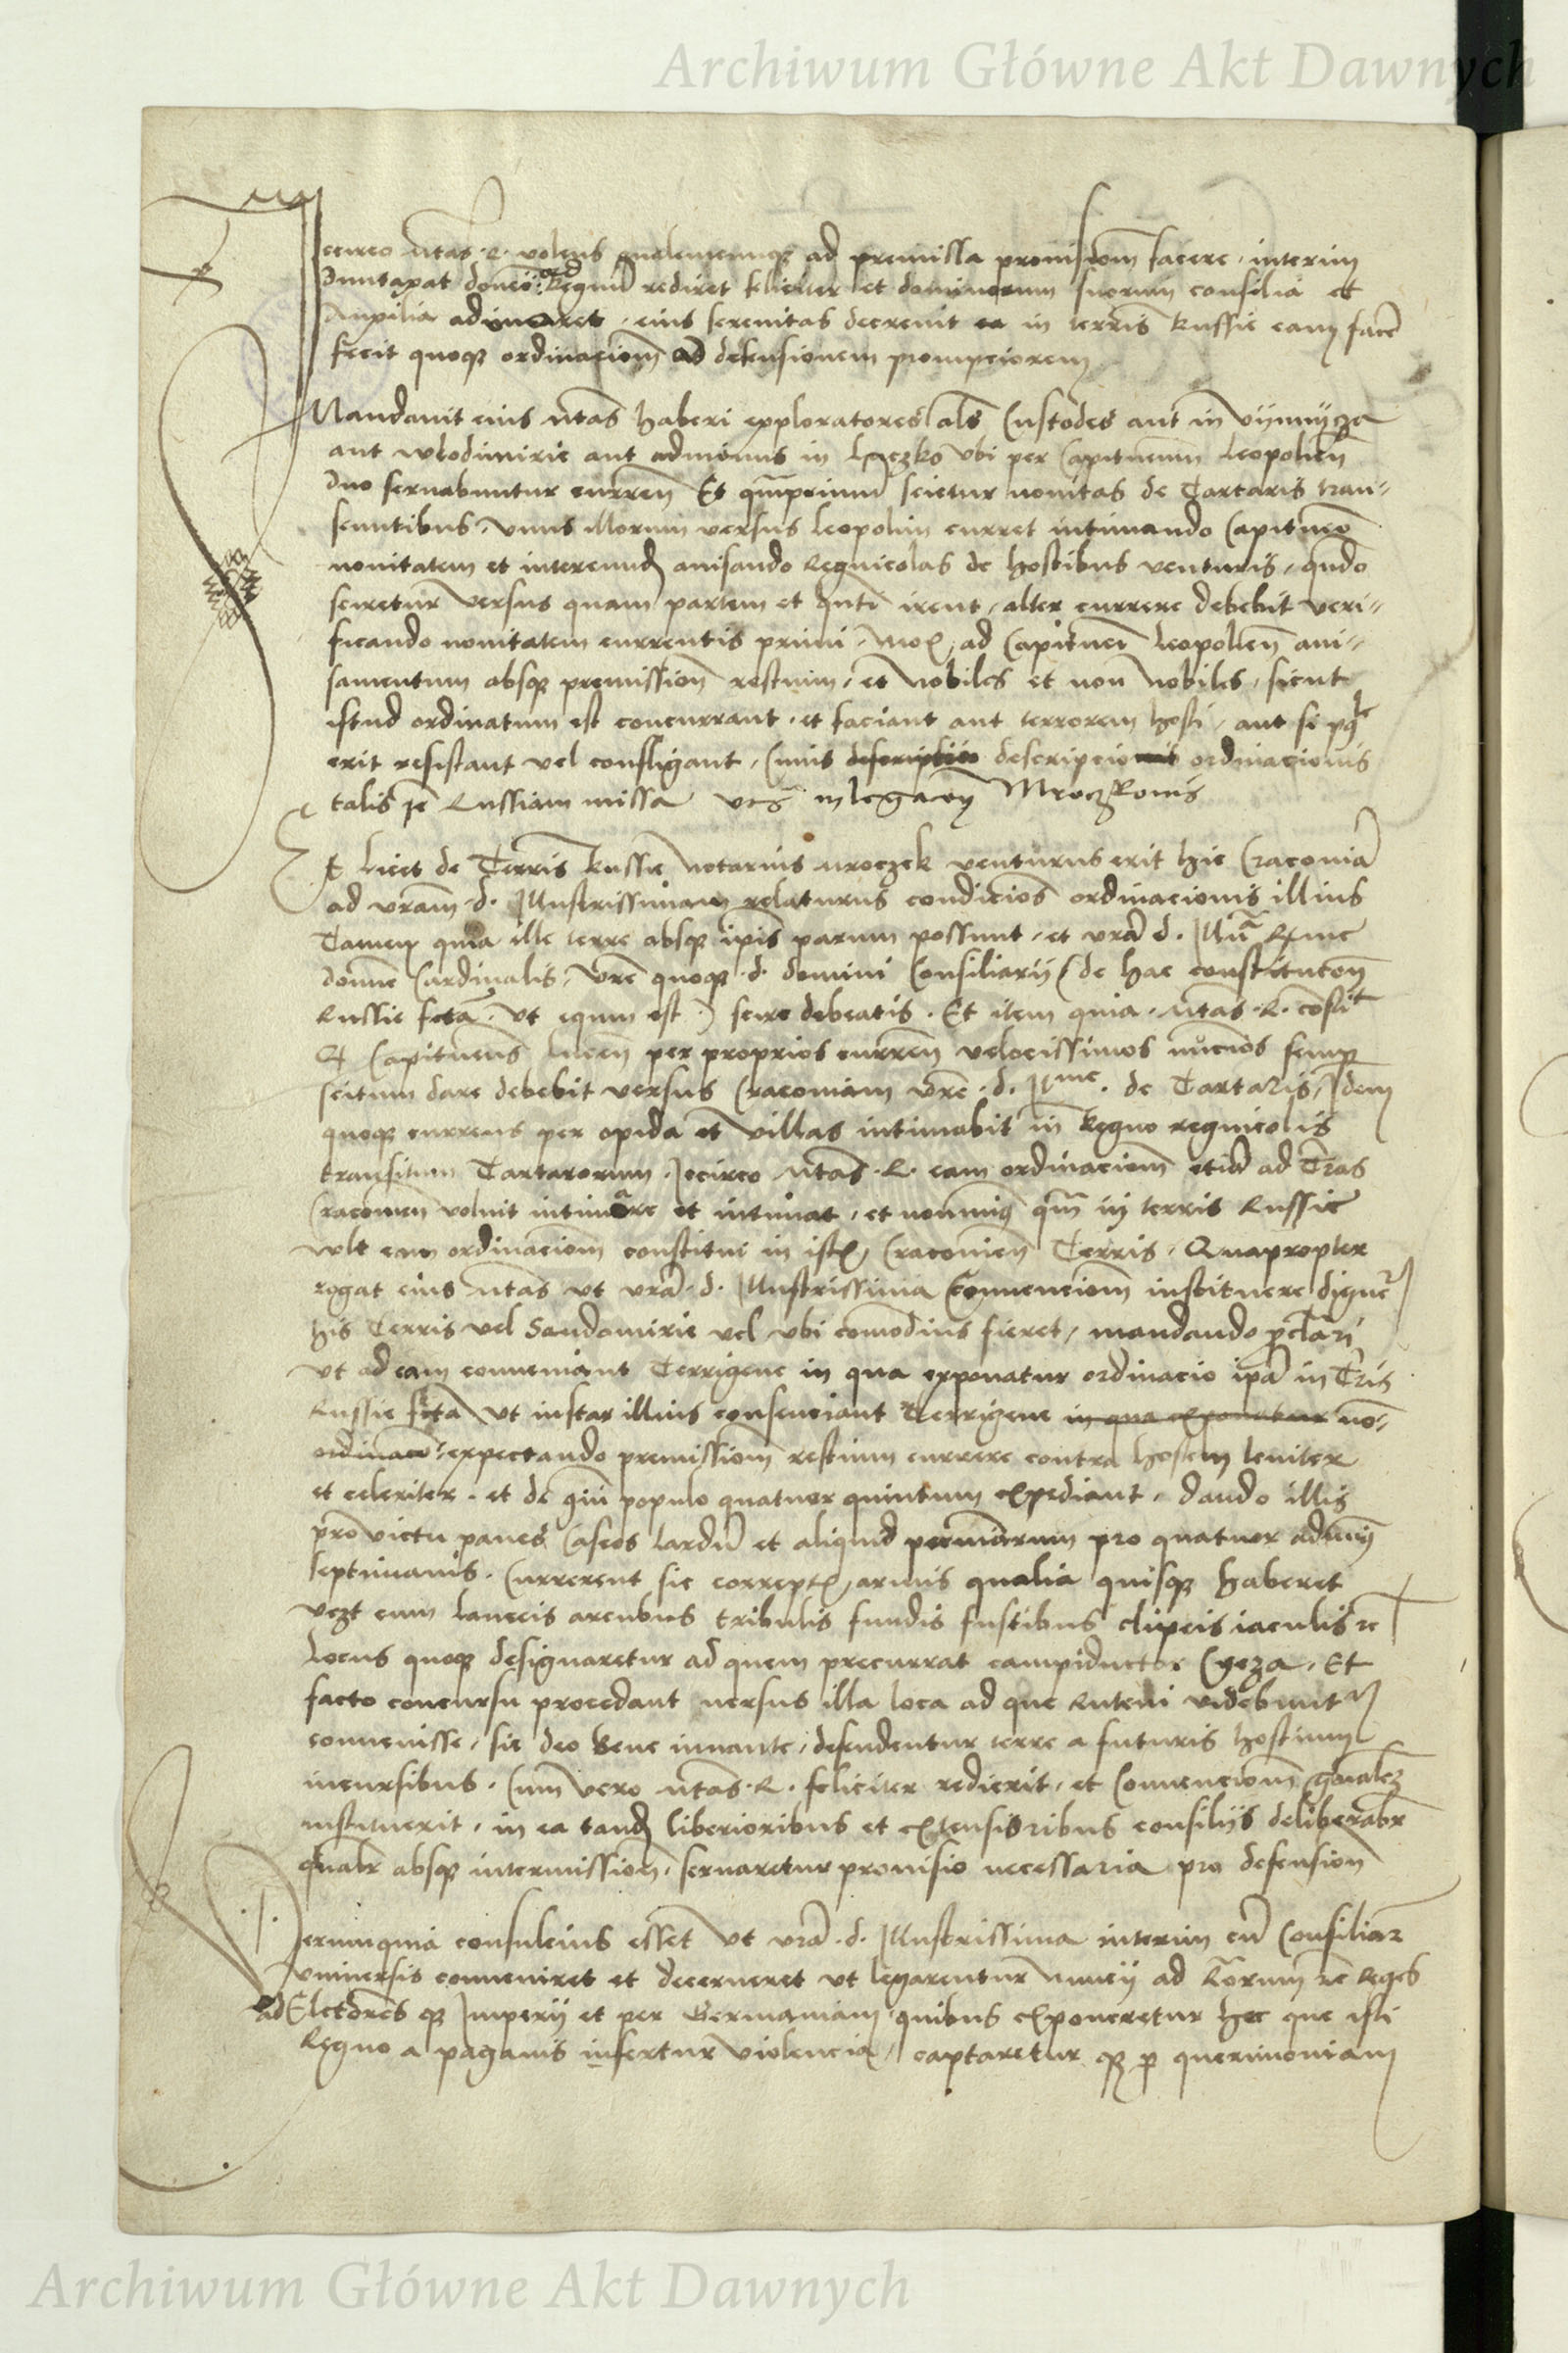 Archiwum Główne Akt Dawnych
Iccirco Mtas R. volens qualemcumque ad premissa provisionem facere, interim
Duntaxat donec ad Regnum rediret feliciter et dominorum suorum consilia et
Auxilia adiuvaret, eius serenitas decrevit in terris Russie eam facere
fecit quoque ordinacionem ad defensionem prompciorem
Mandavit eius Mtas haberi exploratores als Custodes aut in Vijnnijcza
aut Wlodimirie aut adminus in Luczko ubi per Capitneum Leopolien
duo servabuntur curren Et quamprimum scietur novitas de Tartaris tran-
seuntibus, unus illorum versus Leopolim curret intimando Capitneo
novitatem et intereundo avisando Regnicolas de hostibus venturis, quando
sciretur versus quam partem et quanti irent, alter currere debebit veri-
ficando novitatem currentis primi, Mox ad Capitnei Leopolien avi-
samentum absque premissione restium, et Nobiles et non Nobiles, sicut
istud ordinatum est concurrant, et faciant aut terrorem hosti, aut si pqle
erit resistant vel confligant, Cuius descripcio ordinacionis
talis in Russiam missa in legacoy Mroczkonis
Et licet de Terris Russie Notarius Mroczek venturus erit hic Cracoviam
ad vram d. Illustrissimam relaturus condicionem ordinacionis illius
Tamen quia ille terre absque ipis parum possunt, et vra d. Illma Rxme
domine Cardinalis, vre quoque d. domini Consiliarij (de hac constitucon
Russie fcta, ut equm est) scire debeatis. Et item quia Mtas R. constit
Q Capitneus Lucen per proprios curren velocissimos nuncios semp
scitum dare debebit versus Cracoviam vre d. Illme. de Tartaris, Idem
quoque currens per opida et villas intimabit in Regno regnicolis
transitum Tartarorum, Iccirco Mtas R. eam ordinacionem etiam ad Tras
Cracovien voluit intimare et intimat, et nonminus quam in terris Russie
vult eam ordinacionem constitui in istis Cracovien Terris, Quapropter
rogat eius Mtas ut vra d. Illustrissima Convencionem instituere dignetur
his Terris vel Sandomirie vel ubi comodius fieret, mandando pclari
ut ad eam conveniant Terrigene in qua exponatur ordinacio ipa in Tris
Russie fcta ut instar illius consenciant Terrigene in qua exponatur no-
ordinacio expectando premissionem restium currere contra hostem leviter
et celeriter, et de populo quatuor quintum expediant, dando illis
pro victu panes Caseos lardum et aliquid pecuniarum pro quatuor adminus
septimanis. Currerent sic correptis armis qualia quisque haberet
videlicet cum lanceis arcubus tribulis fundis fustibus clipeis iaculis etc
Locus quoque designaretur ad quem precurrat campiductor Cgeza. Et
facto concursu procedant versus illa loca ad que Ruteni videbuntur
convenisse, sic deo bene iuvante, defendentur terre a futuris hostium
incursibus. Cum vero Mtas R. feliciter redierit, et Convencionem gnalem
instituerit, in ea tandem liberioribus et extensioribus consilijs deliberabr
qualr absque intermissione, servaretur provisio necessaria pro defension
Verumquia consulcius esset ut vra d. Illustrissima interim cum Consiliar
universis conveniret et decerneret ut legarentur nuncij ad Roru etc Reges
ad Elctores que Imperij et per Germaniam, quibus exponeretur hec que isti
Regno a paganis infertur violencia, captaretur que p querimoniam
Archiwum Główne Akt Dawnych